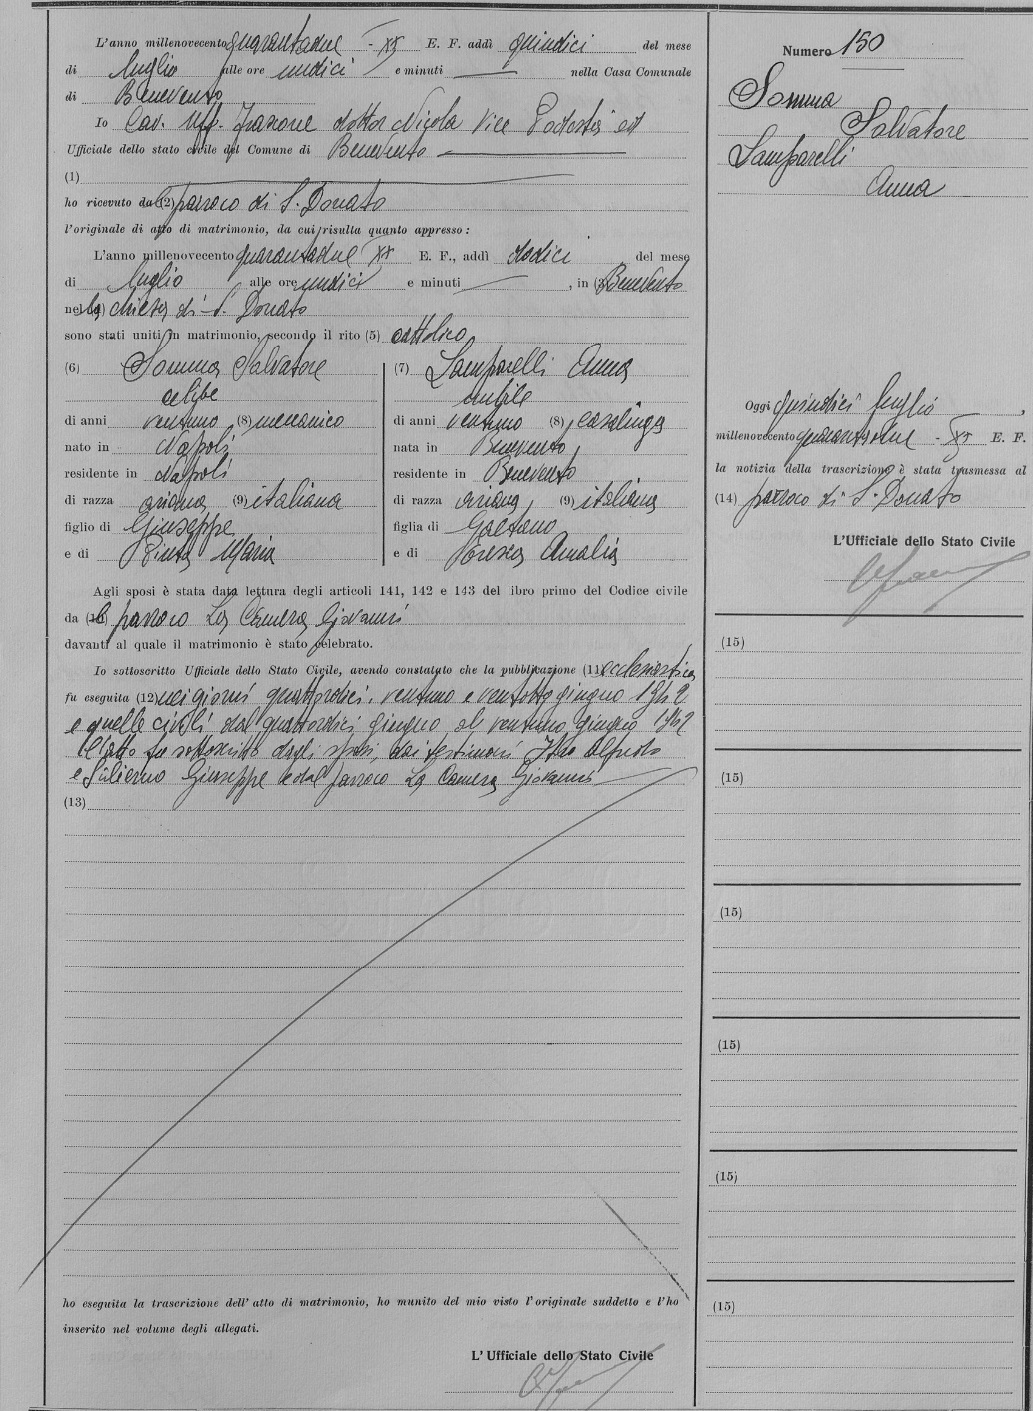 L'anno millenovecento quarantadue - XX E. F. addì quindici del mese
di luglio alle ore undici e minuti — nella Casa Comunale
di Benevento
Io Cav. Uff. Frascione dottor Nicola Vice Podestà ed
Ufficiale dello stato civile del Comune di Benevento
(1)
ho ricevuto dal (2) parroco di S. Donato
l'originale di atto di matrimonio, da cui risulta quanto appresso :
L'anno millenovecento quarantadue XX E. F., addì dodici del mese
di luglio alle ore undici e minuti — , in (3) Benevento
nella (4) chiesa di S. Donato
sono stati uniti in matrimonio, secondo il rito (5) cattolico
(6) Somma Salvatore
celibe
di anni ventuno (8) meccanico
nato in Napoli
residente in Napoli
di razza ariana (9) italiana
figlio di Giuseppe
e di Pinto Maria
(7) Lamparelli Anna
nubile
di anni ventuno (8) casalinga
nata in Benevento
residente in Benevento
di razza ariana (9) italiana
figlia di Gaetano
e di Amalia
Agli sposi è stata data lettura degli articoli 141, 142 e 143 del ibro primo del Codice civile
da (10) parroco La Camera Giovanni
davanti al quale il matrimonio è stato celebrato.
Io sottoscritto Ufficiale dello Stato Civile, avendo constatato che la pubblicazione (11) ecclesiastica
fu eseguita (12) nei giorni quattordici, ventuno e ventotto giugno 1942
e quelle civili dal quattordici giugno al ventuno giugno 1942
L'atto fu sottoscritto dagli sposi, dai testimoni Alfredo
e Giuseppe e dal parroco La Camera Giovanni
(13)
ho eseguita la trascrizione dell' atto di matrimonio, ho munito del mio visto l'originale suddetto e l'ho
inserito nel volume degli allegati.
L' Ufficiale dello Stato Civile
Numero 150
Somma
Salvatore
Lamparelli
Anna
Oggi quindici luglio ,
millenovecento quarantadue - XX E. F.
la notizia della trascrizione è stata trasmessa al
(14) parroco di S. Donato
L'Ufficiale dello Stato Civile
(15)
(15)
(15)
(15)
(15)
(15)